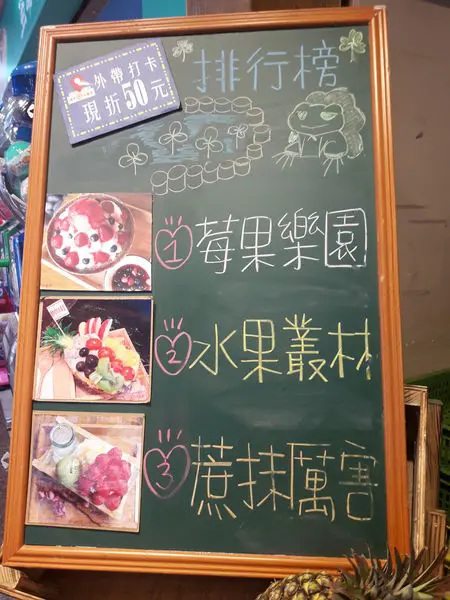 外帶打卡
現折50元
排行榜
1 莓果樂園
2 水果叢林
3 蔗抹厲害